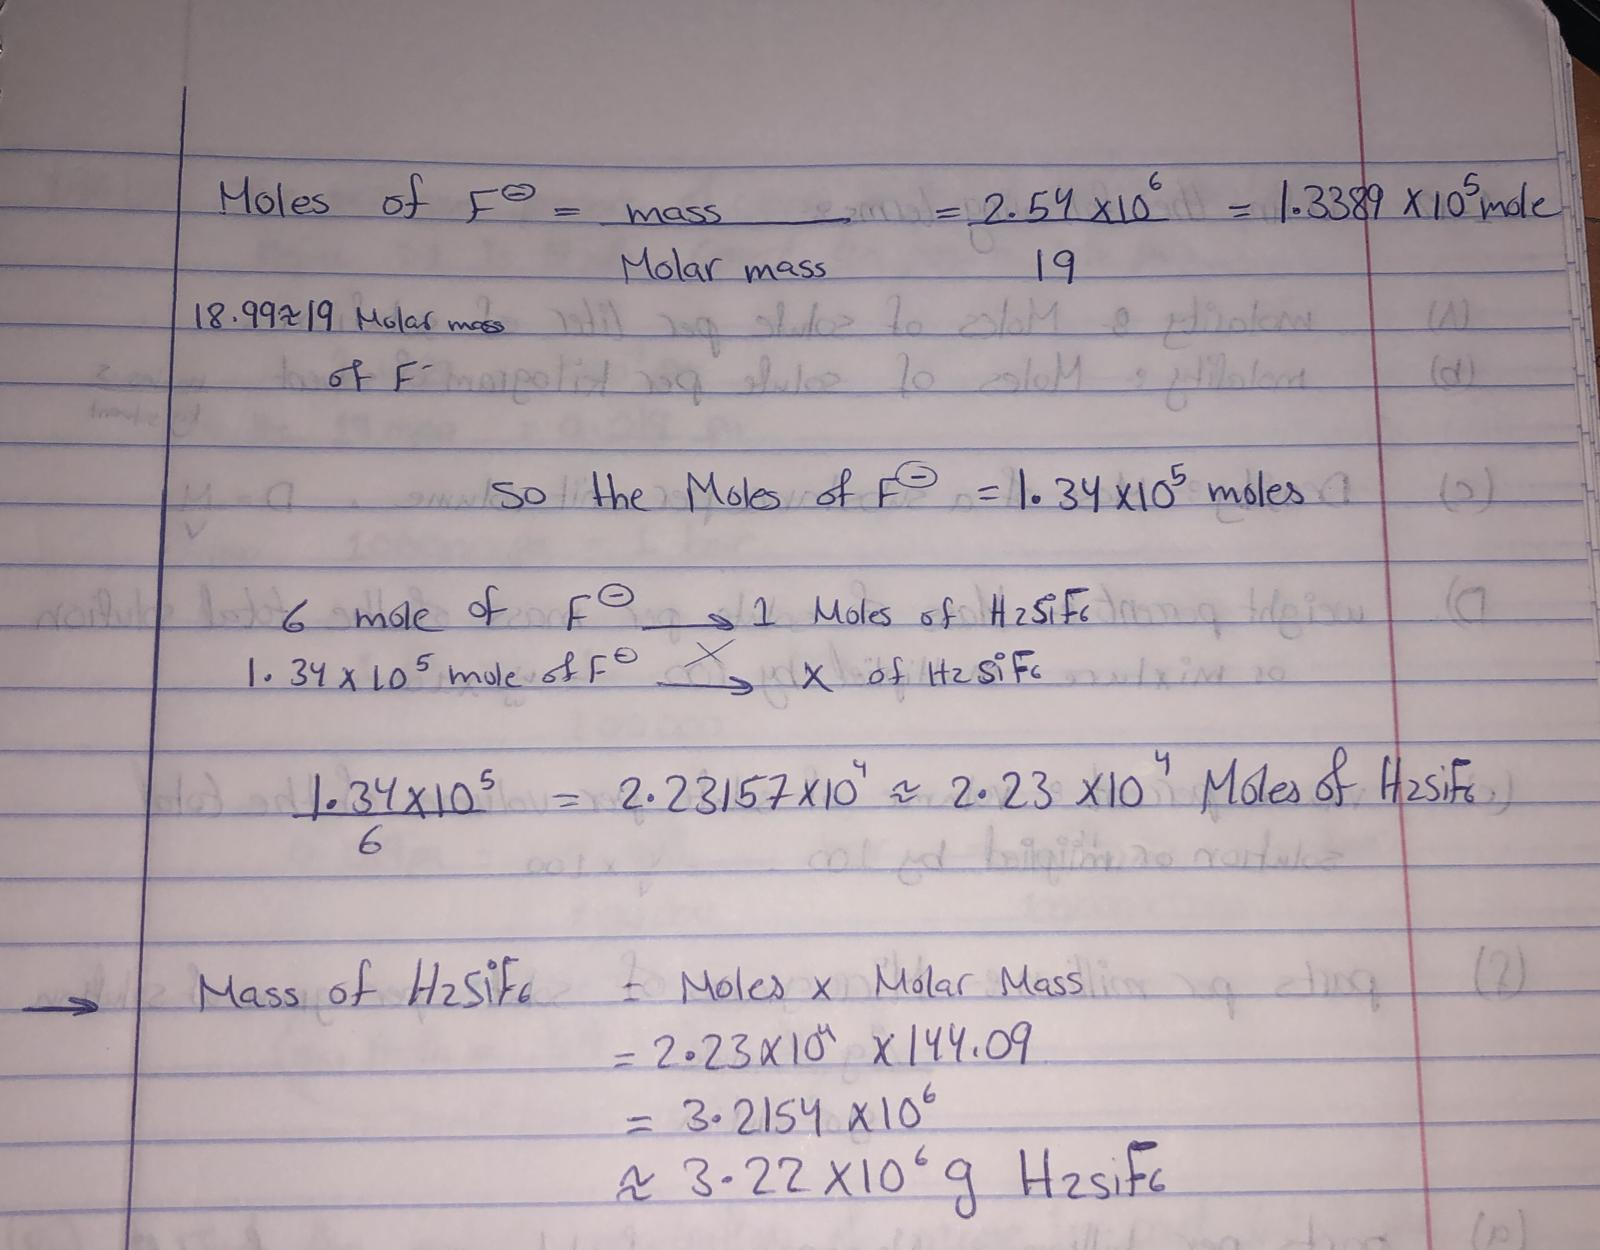 Moles of F⊖ = mass / Molar mass = 2.54 x10⁶ / 19 = 1.3389 x10⁵ mole
18.99≈19 Molar mass
of F⁻
so the Moles of F⊖ = 1.34 x10⁵ moles
6 mole of F⊖ → 1 Moles of H2SiF6
1.34 x 10⁵ mole of F⊖ → X of H2SiF6
1.34x10⁵ / 6 = 2.23157x10⁴ ≈ 2.23 x10⁴ Moles of H2SiF6
→ Mass of H2SiF6 = Moles x Molar Mass
= 2.23x10⁴ x 144.09
= 3.2154 x10⁶
≈ 3.22 x10⁶ g H2SiF6